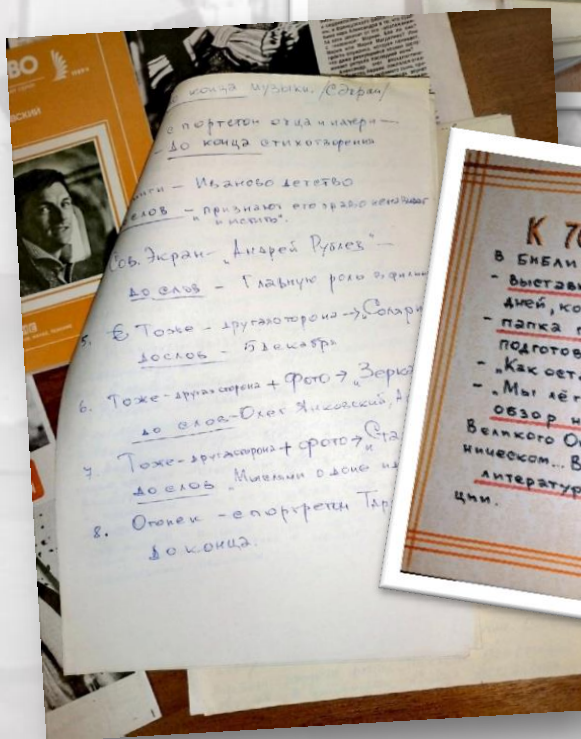 ВО
СКИЙ
до конца музыки. /С экран/
с портетом отца и матери —
- до конца стихотворения
книги – Иваново детство
до слов – "признают его право ненавидеть
и мстить".
Сов. Экран – „Андрей Рублев" –
до слов – Главную роль в фильм
5. Тоже – другая сторона → „Соляри
до слов – 5 декабря
6. Тоже – другая сторона + фото → „Зерка
до слов – Олег Янковский, А
7. Тоже – другая сторона + фото → „Ста
до слов „Мыслями о доме
8. Огонек – с портретом Тар
до конца.
К 70
В БИБЛИ
- выстав
дней, ко
- папка
подготов
- „Как ост
- „Мы лёг
обзор н
Великого О
ническом... В
литератур
ции.